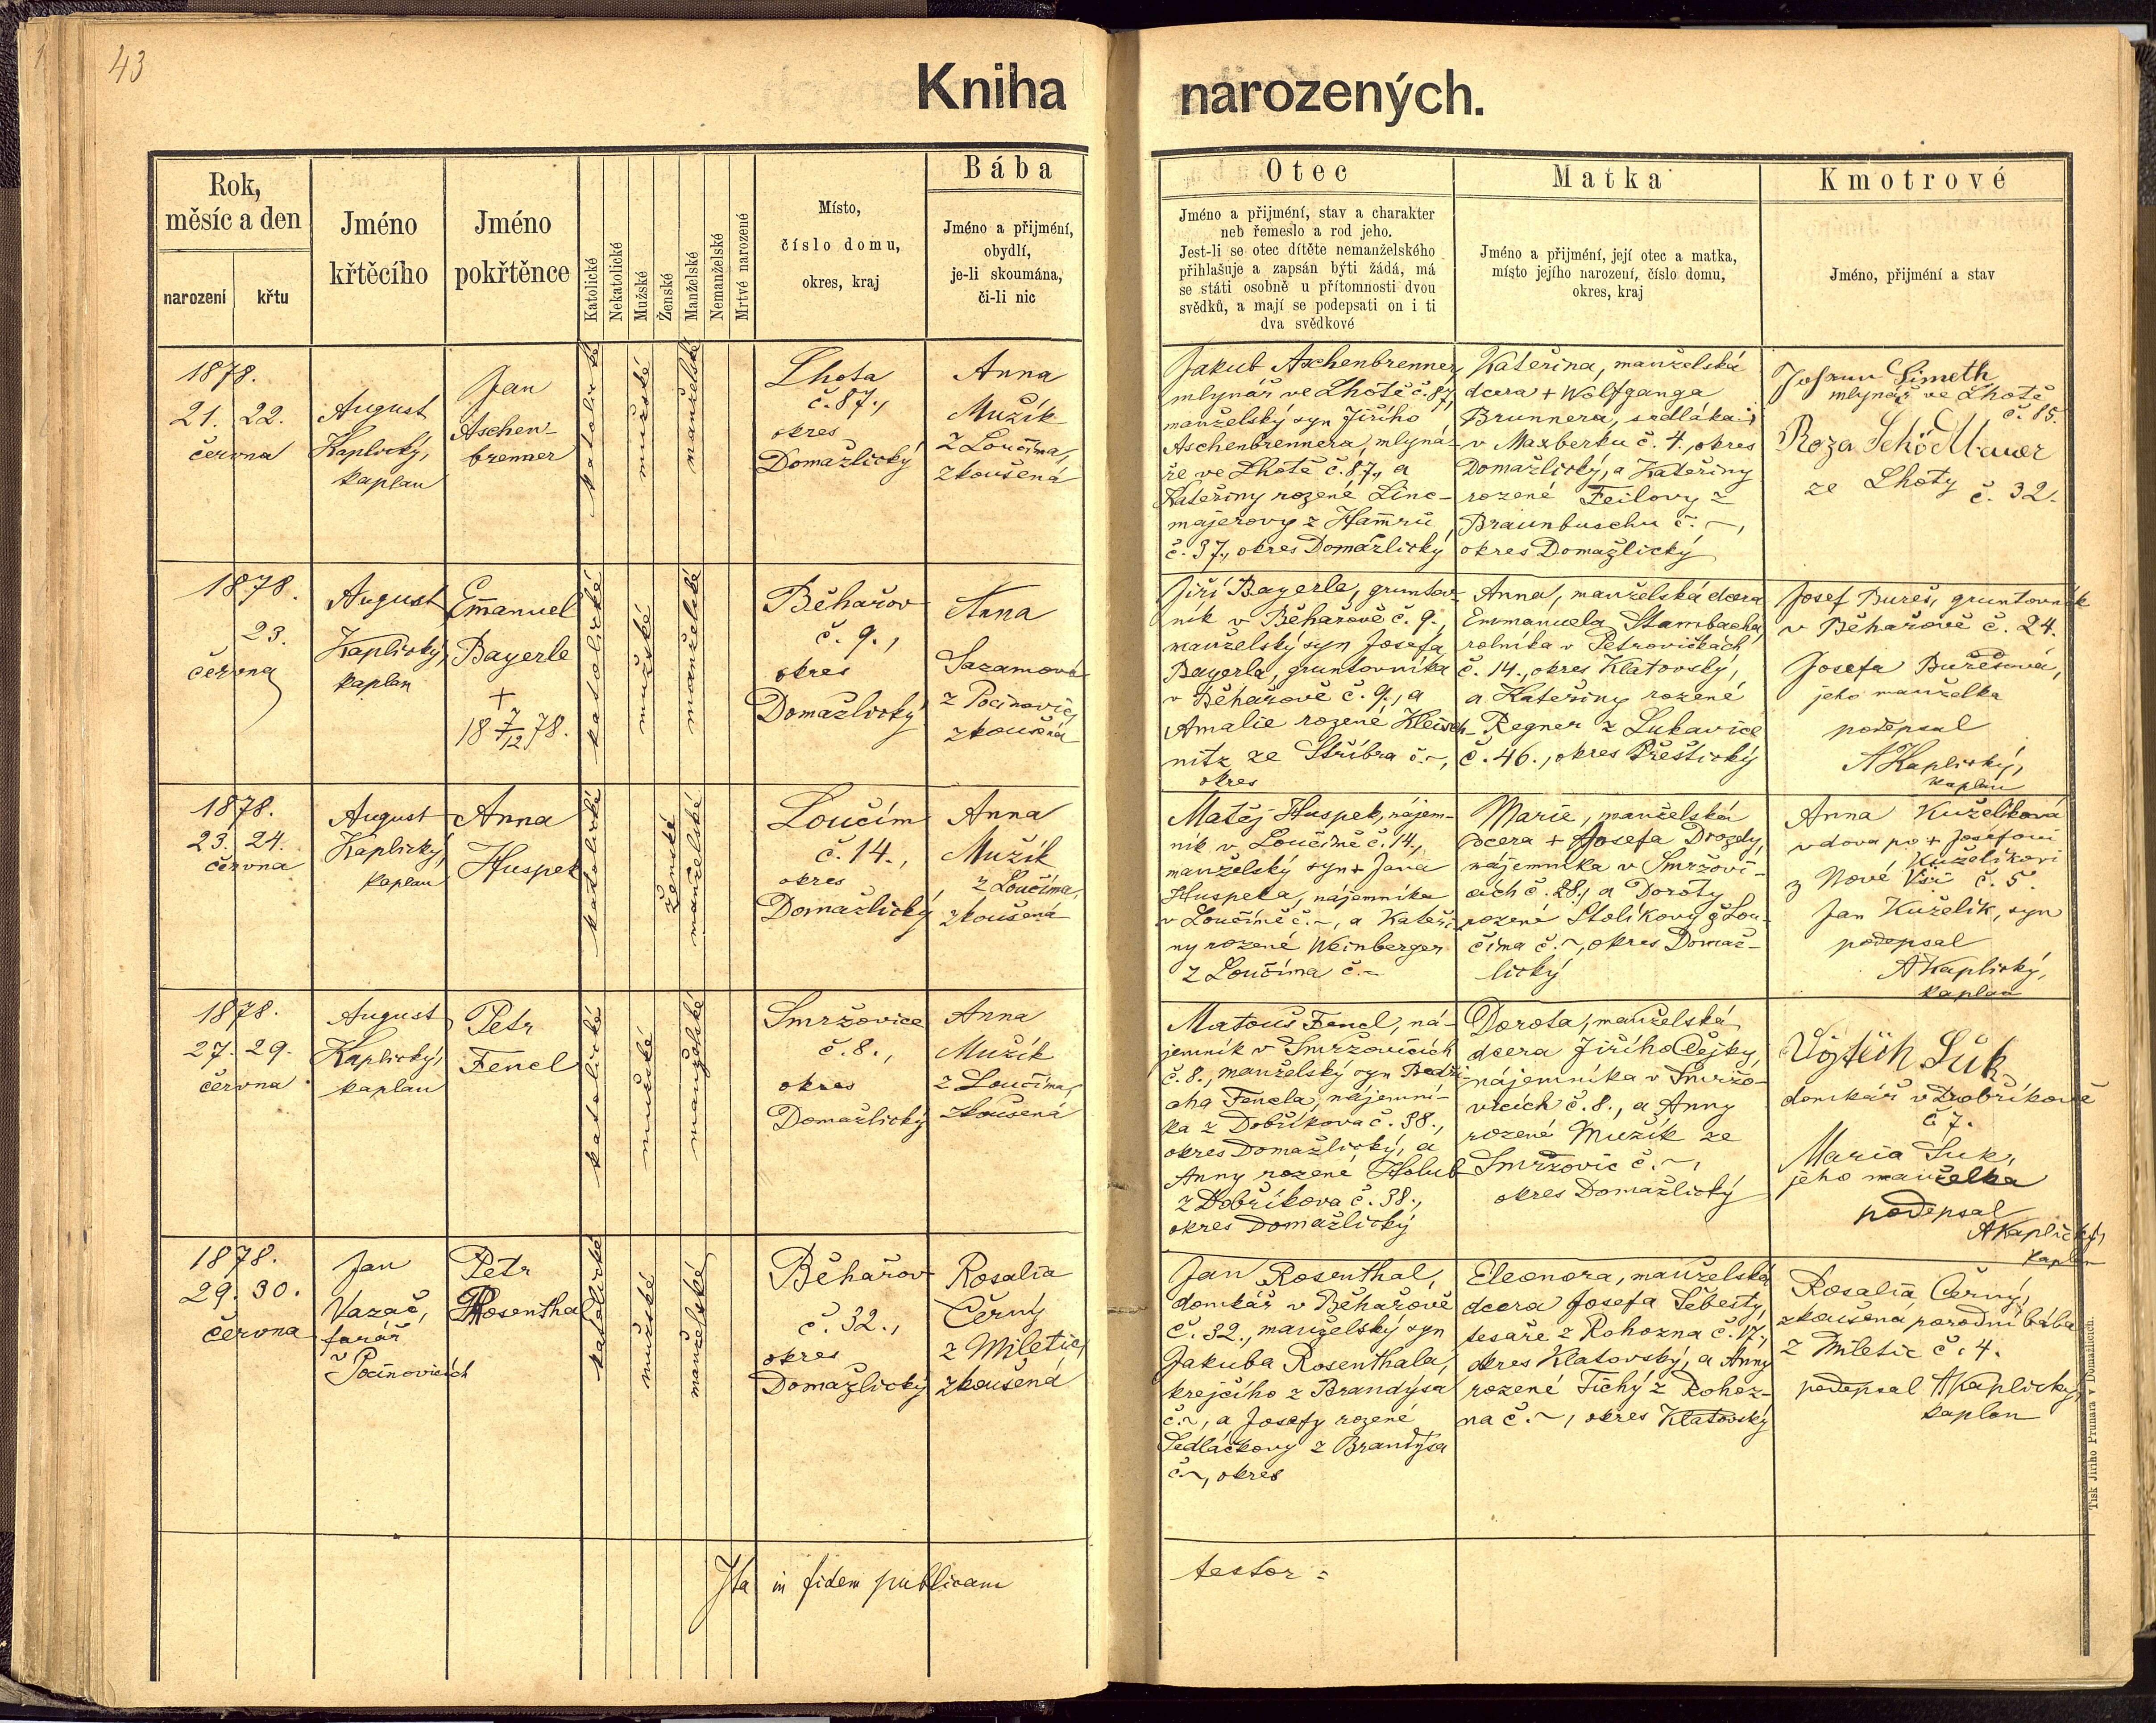 43
Kniha narozených.
Rok,
měsíc a den
narození
křtu
Jméno
křtěcího
Jméno
pokřtěnce
Katolické
Nekatolické
Mužské
Ženské
Manželské
Nemanželské
Mrtvé narozené
Místo,
číslo domu,
okres, kraj
Bába
Jméno a přijmení,
obydlí,
je-li skoumána,
či-li nic
Otec
Jméno a přijmení, stav a charakter
neb řemeslo a rod jeho.
Jest-li se otec dítěte nemanželského
přihlašuje a zapsán býti žádá, má
se státi osobně u přítomnosti dvou
svědků, a mají se podepsati on i ti
dva svědkové
Matka
Jméno a přijmení, její otec a matka,
místo jejího narození, číslo domu,
okres, kraj
Kmotrové
Jméno, přijmení a stav
1878.
21. 22.
června
August
Kaplický,
kaplan
Jan
Aschen-
brenner
katolické
mužské
manželské
Lhota
č. 87.,
okres
Domažlický
Anna
Mužík
z Loučíma,
zkoušená
Jakub Aschenbrenner,
mlynář ve Lhotě č. 87.,
manželský syn Jiřího
Aschenbrennera, mlyná-
ře ve Lhotě č. 87., a
Kateřiny rozené Linc-
majerovy z Hamrů
č. 37., okres Domažlický
Kateřina, manželská
dcera + Wolfganga
Brunnera, sedláka
v Maxberku č. 4., okres
Domažlický, a Kateřiny
rozené Feilovy z
Braunbuschu č. ~,
okres Domažlický
Johann Simeth
mlynář ve Lhotě
č. 85.
Roza
ze Lhoty č. 32.
1878.
23.
června
August
Kaplický,
kaplan
Emanuel
Bayerle
+
18 7/12 78.
katolické
mužské
manželské
Běhařov
č. 9.,
okres
Domažlický
Anna
Sazamová
z Počinovic,
zkoušená
Jiří Bayerle, gruntov-
ník v Běhařově č. 9.,
manželský syn Josefa
Bayerla, gruntovníka
v Běhařově č. 9., a
Amalie rozené Kleisch-
nitz ze Stříbra č. ~,
okres
Anna, manželská dcera
Emmanuela Stambacha,
rolníka v Petrovičkách
č. 14., okres Klatovský,
a Kateřiny rozené
Regner z Lukavice
č. 46., okres Přeštický
Josef Bureš, gruntovník
v Běhařově č. 24.
Josefa Burešová,
jeho manželka
podepsal
AKaplický,
kaplan
1878.
23. 24.
června
August
Kaplický,
kaplan
Anna
Huspek
katolické
ženské
manželské
Loučim
č. 14.,
okres
Domažlický
Anna
Mužík
z Loučíma,
zkoušená
Matěj Huspek, nájem-
ník v Loučimě č. 14.,
manželský syn + Jana
Huspeka, nájemníka
v Loučimě č. ~, a Kateři-
ny rozené Weinberger
z Loučíma č. ~
Marie, manželská
dcera + Josefa Drozdy,
nájemníka v Smržovi-
cích č. 28., a Doroty
rozené Stolíkovy z Lou-
číma č. ~, okres Domaž-
lický
Anna Kuželíková
vdova po + Josefovi
Kuželíkovi
z Nové Vsi č. 5.
Jan Kuželík, syn
podepsal
AKaplický,
kaplan
1878.
27. 29.
června
August
Kaplický,
kaplan
Petr
Fencl
katolické
mužské
manželské
Smržovice
č. 8.,
okres
Domažlický
Anna
Mužík
z Loučíma,
zkoušená
Matouš Fencl, ná-
jemník v Smržovicích
č. 8., manželský syn Bedři-
cha Fencla, nájemní-
ka z Dobříkova č. 38.,
okres Domažlický, a
Anny rozené Holub
z Dobříkova č. 38.,
okres Domažlický
Dorota, manželská
dcera Jiřího Dejky,
nájemníka v Smržo-
vicích č. 8., a Anny
rozené Mužík ze
Smržovic č. ~,
okres Domažlický
Vojtěch Suk
domkář v Dobříkově
č 7.
Maria Suk,
jeho manželka
podepsal
AKaplický,
kaplan
1878.
29. 30.
června
Jan
Vazač,
farář
v Počinovicích
Petr
Rosenthal
katolické
mužské
manželské
Běhařov
č. 32.,
okres
Domažlický
Rosalia
Černý
z Miletic,
zkoušená
Jan Rosenthal,
domkář v Běhařově
č. 32., manželský syn
Jakuba Rosenthala,
krejčího z Brandýsa
č. ~, a Josefy rozené
Sedláčkovy z Brandýsa
č. ~, okres
Eleonora, manželská
dcera Josefa Šebesty,
tesaře z Rohozna č. 17.,
okres Klatovský, a Anny
rozené Tichý z Rohoz-
na č. ~, okres Klatovský
Rosalia Černý,
zkoušená porodní bába
z Miletic č. 4.
podepsal AKaplický,
kaplan
Ita in fidem publicam testor :
Tisk Jiřího Prunara v Domažlicích.